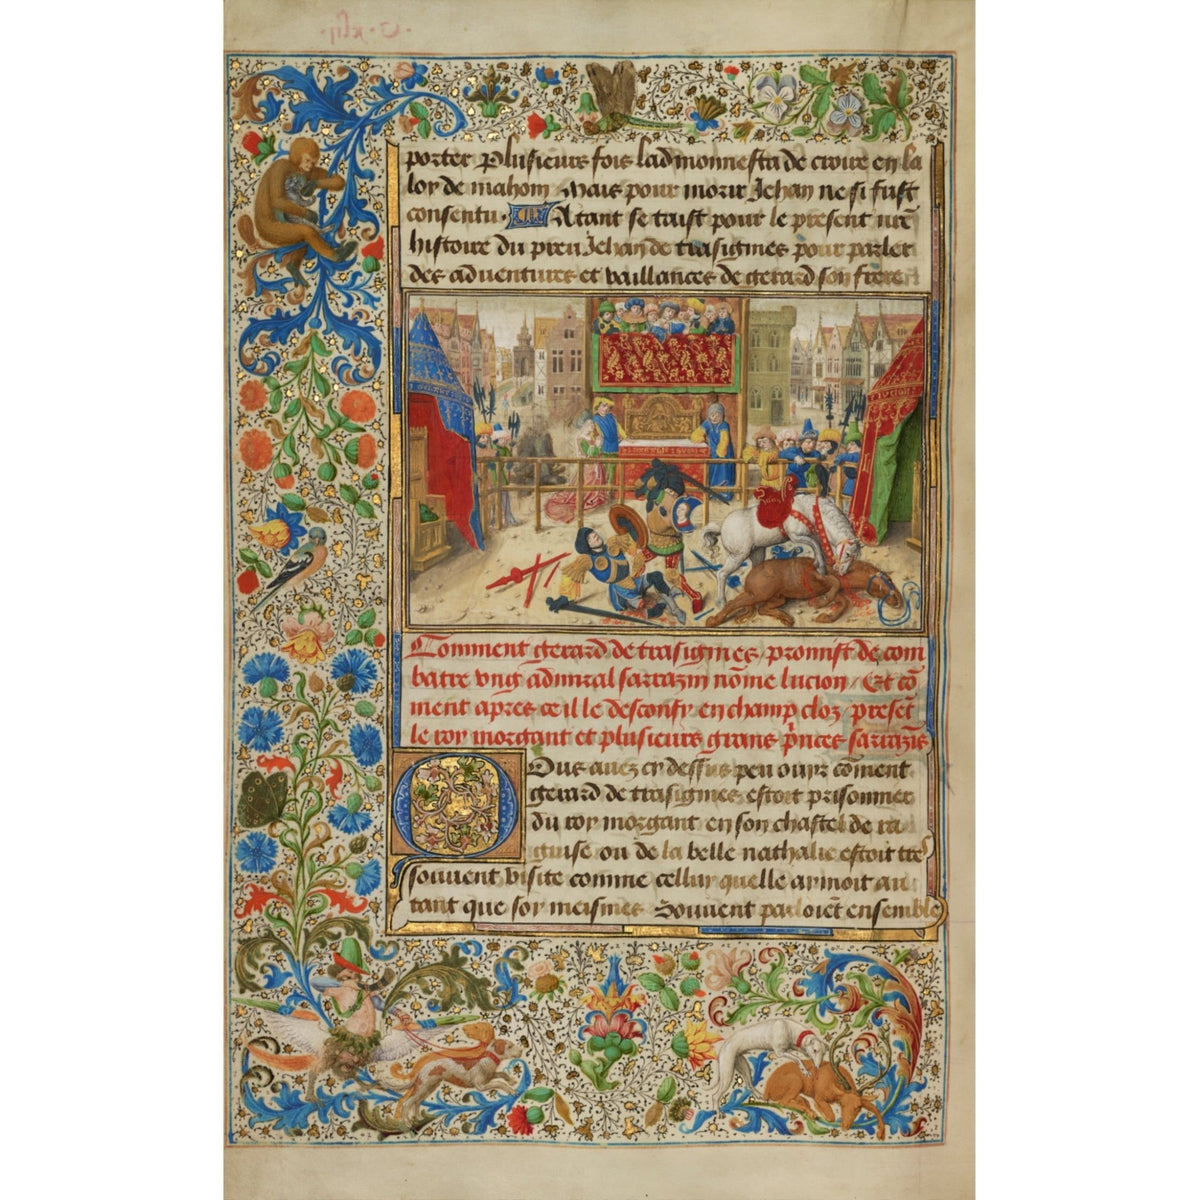 porter Plusieurs fois ladmonnesta de croire en la
loy de mahom Mais pour morir Jehan ne si fust
consentu. Atant se taist pour le present nr̄e
histoire du preu Jehan de trasignies pour parler
des aduentures et vaillances de gerard son frere
Comment gerard de trasignies promist de com
batre vng admiral sarrazin nōme lucion / Et cō
ment apres ce il le desconfy en champ cloz / presēt
le roy morgant et plusieurs grans p̄nces sarrazīs
Ous auez cy dessus peu ouyr cōment
gerard de trasignies estoit prisonnier
du roy morgant en son chastel de ra
guise ou de la belle nathalie estoit tres
souuent visite comme celluy quelle aymoit au
tant que soy meismes Souuent parloiēt ensemble